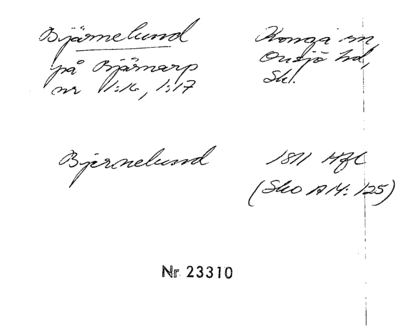 Bjärnelund
på Bjärnarp
nr 1:16, 1:17
Konga sn
Onsjö hd,
Sk.
Bjernelund
1811 Hfl
(Sko AM: 125)
Nr 23310